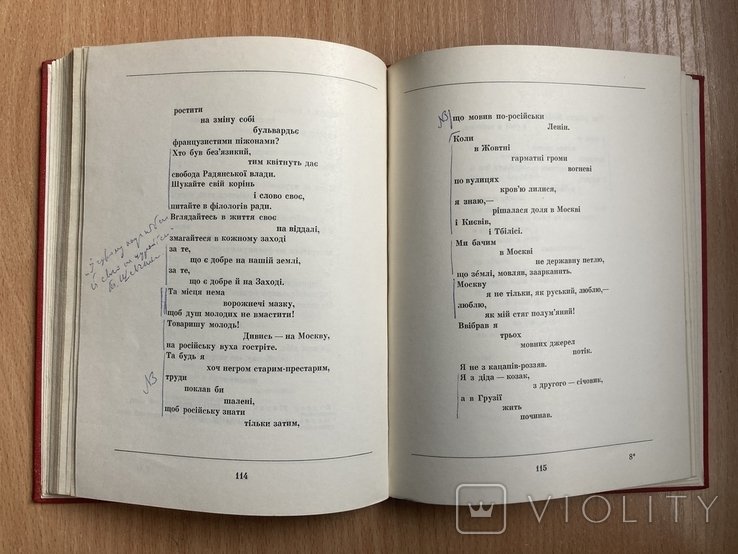 ростити
на зміну собі
бульвардьє
французистими піжонами?
Хто був без'язикий,
тим квітнуть дає
свобода Радянської влади.
Шукайте свій корінь
і слово своє,
питайте в філологів ради.
Вглядайтесь в життя своє
на віддалі,
змагайтеся в кожному заході
за те,
що є добре на нашій землі,
за те,
що є добре й на Заході.
Та місця нема
ворожнечі мазку,
щоб душ молодих не вмастити!
Товаришу молодь!
Дивись — на Москву,
на російську вуха гостріте.
Та будь я
хоч негром старим-престарим,
труди
поклав би
шалені,
щоб російську знати
тільки затим,
114
що мовив по-російськи
Ленін.
Коли
в Жовтні
гарматні громи
вогневі
по вулицях
кров'ю лилися,
я знаю,—
рішалася доля в Москві
і Київів,
і Тбілісі.
Ми бачим
в Москві
не державну петлю,
що землі, мовляв, заарканить.
Москву
я не тільки, як руський, люблю,—
люблю,
як мій стяг полум'яний!
Ввібрав я
трьох
мовних джерел
потік.
Я не з кацапів-роззяв.
Я з діда — козак,
з другого — січовик,
а в Грузії
жить
починав.
115
8*
VIOLITY